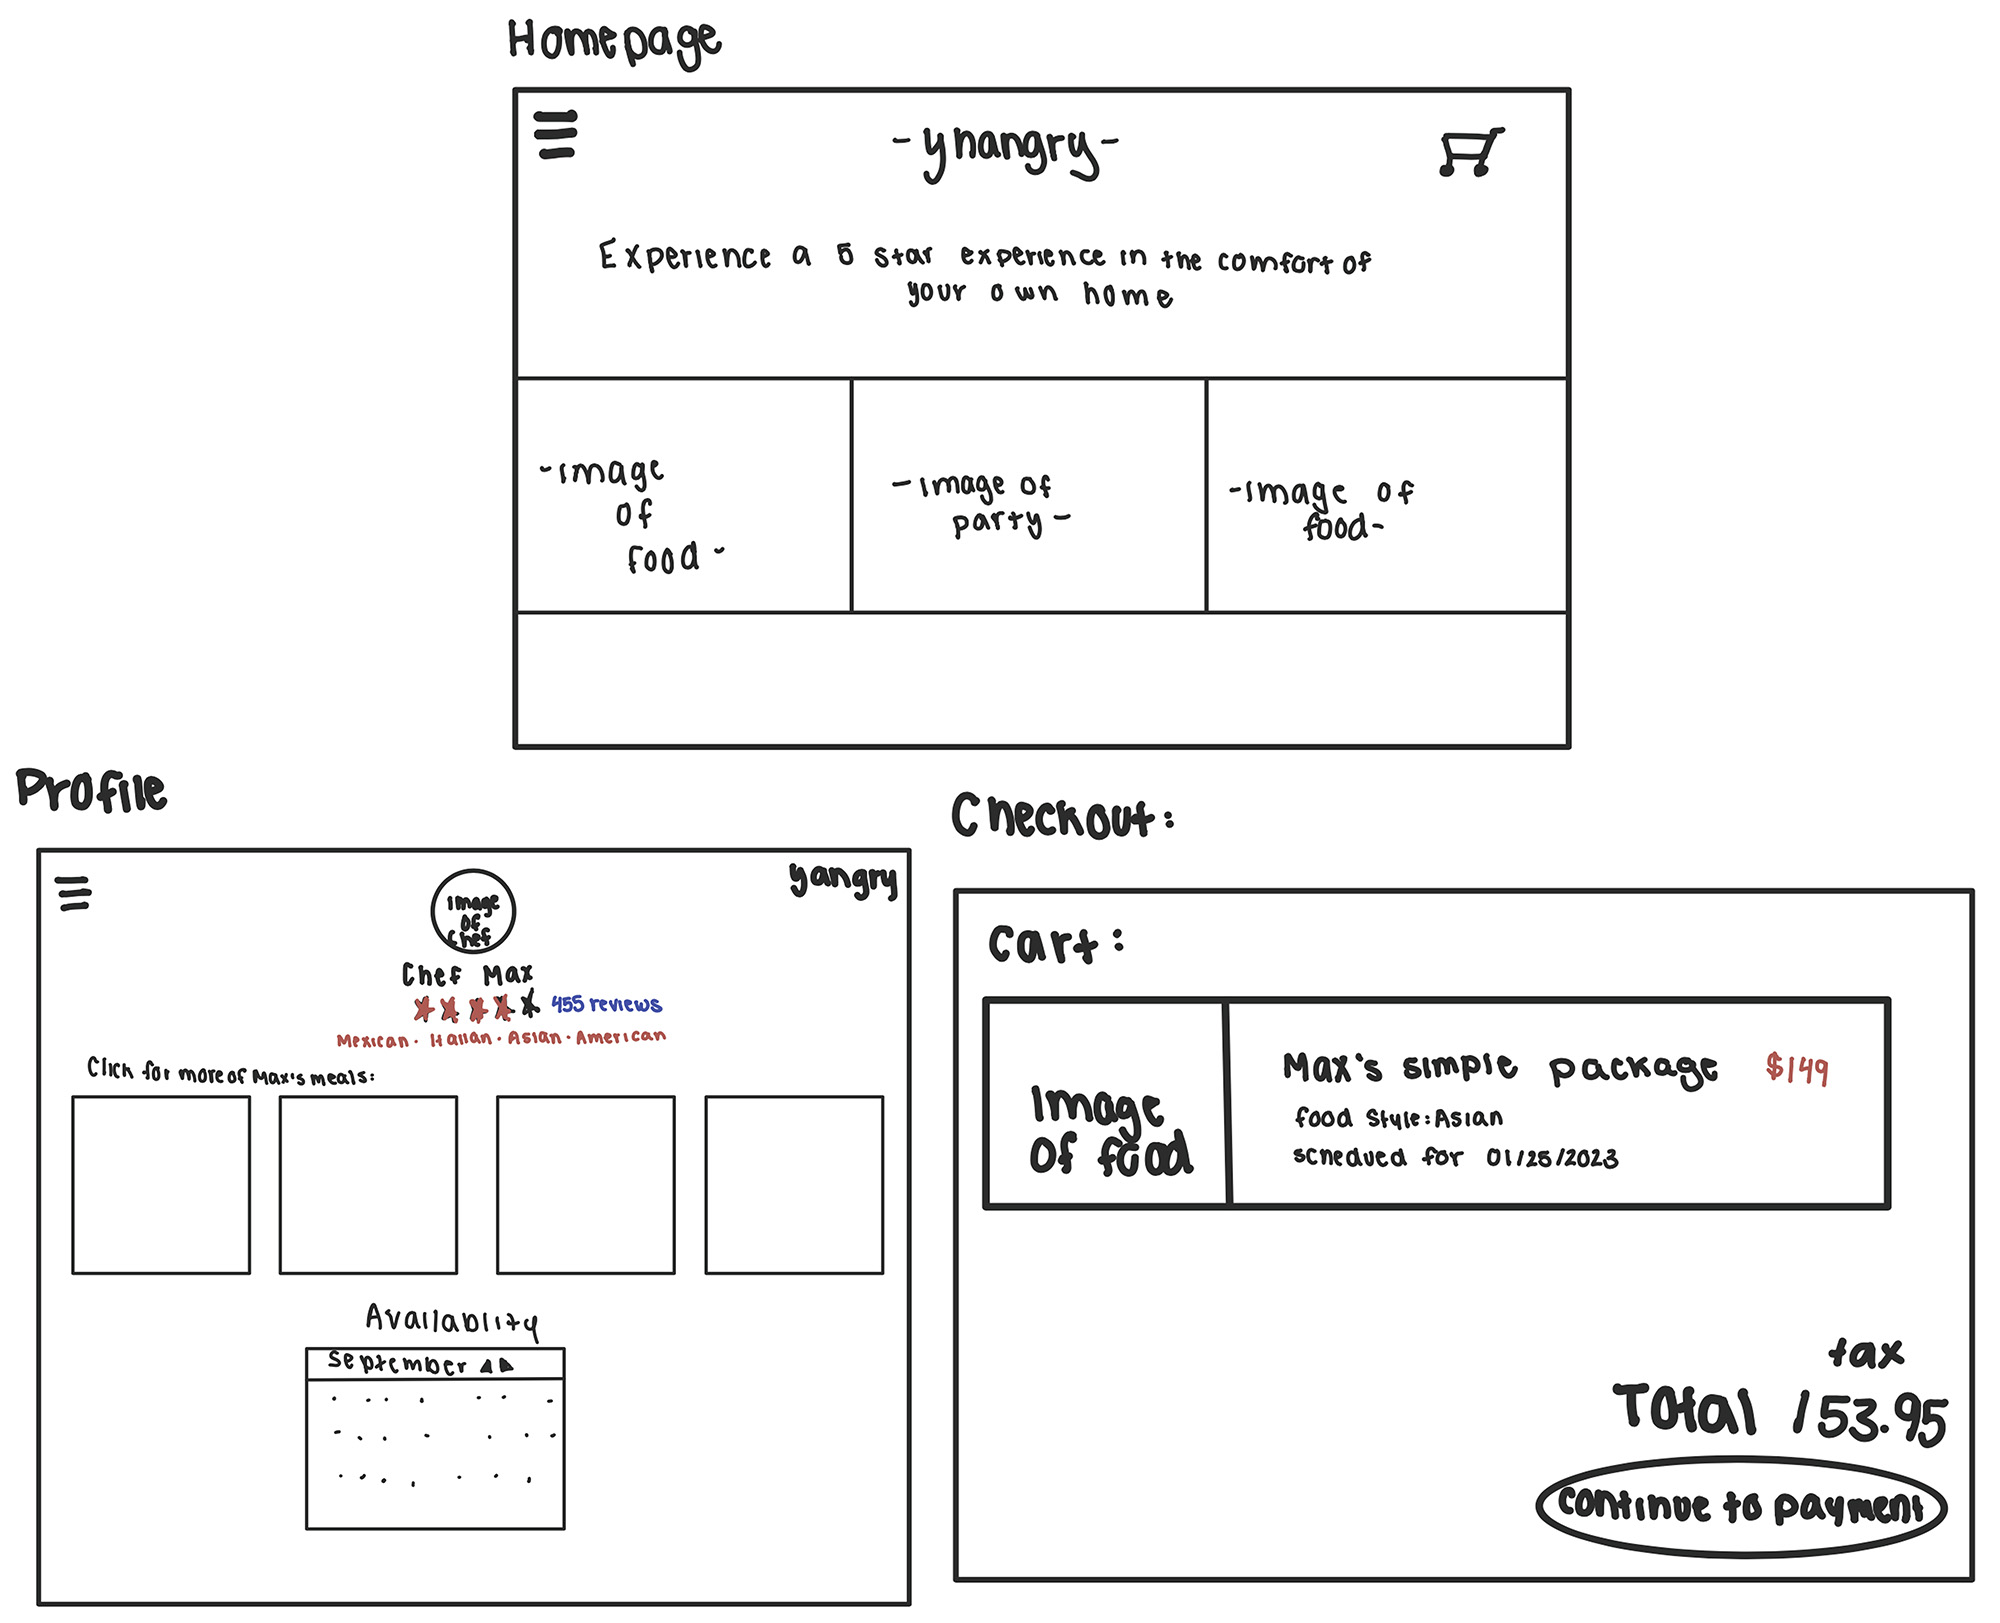 Homepage
-yhangry-
Experience a 5 star experience in the comfort of
your own home
-image
of
food-
-image of
party-
-image of
food-
Profile
yangry
image
of
chef
Chef Max
455 reviews
Mexican · Italian · Asian · American
Click for more of Max's meals:
Availablity
September
Checkout:
Cart:
Image
of food
Max's simple package $149
food style: Asian
schedued for 01/25/2023
tax
Total 153.95
continue to payment